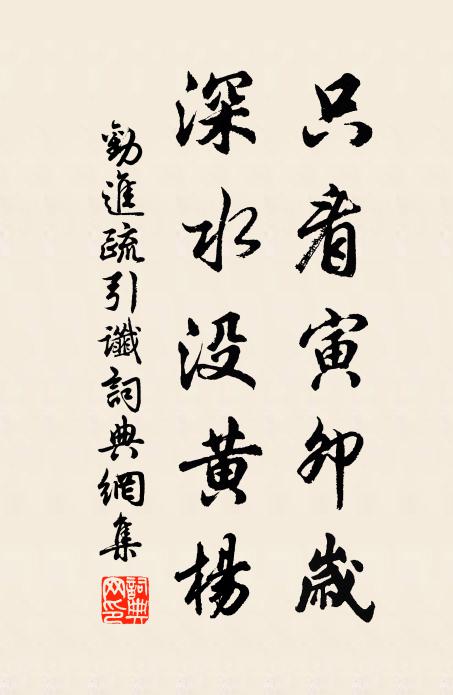 只看寅卯歲
深水没黄楊
勸進疏引讖詞典網集
詞典網印